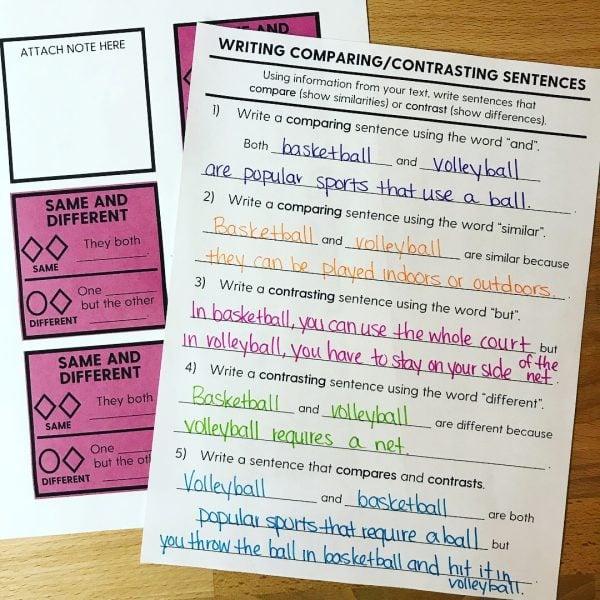 ATTACH NOTE HERE
SAME AND
SAME AND
DIFFERENT
They both
SAME
One
but the other
DIFFERENT
SAME AND
DIFFERENT
They both
SAME
One
but the oth
DIFFERENT
WRITING COMPARING/CONTRASTING SENTENCES
Using information from your text, write sentences that
compare (show similarities) or contrast (show differences).
1) Write a comparing sentence using the word "and".
Both basketball and volleyball
are popular sports that use a ball.
2) Write a comparing sentence using the word "similar".
Basketball and volleyball are similar because
they can be played indoors or outdoors.
3) Write a contrasting sentence using the word "but".
In basketball, you can use the whole court but
in volleyball, you have to stay on your side of the net.
4) Write a contrasting sentence using the word "different".
Basketball and volleyball are different because
volleyball requires a net.
5) Write a sentence that compares and contrasts.
Volleyball and basketball are both
popular sports that require a ball but
you throw the ball in basketball and hit it in
volleyball.